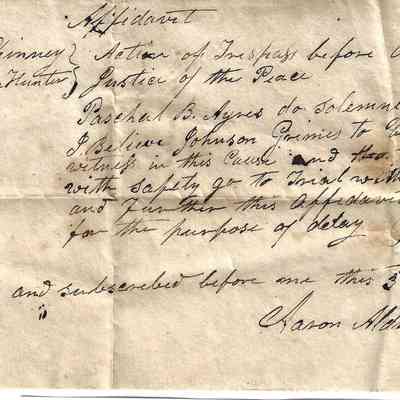 Affidavit
Phinney } Action of Trespass before
Hunter } Justice of the Peace
Paschal B. Ayres do solemn
I Believe Johnson Grimes to
witness in this Cause and
with safety go to Trial with
and Further this Affidavit
for the purpose of delay
and subscribed before me this 3
Aaron Ald